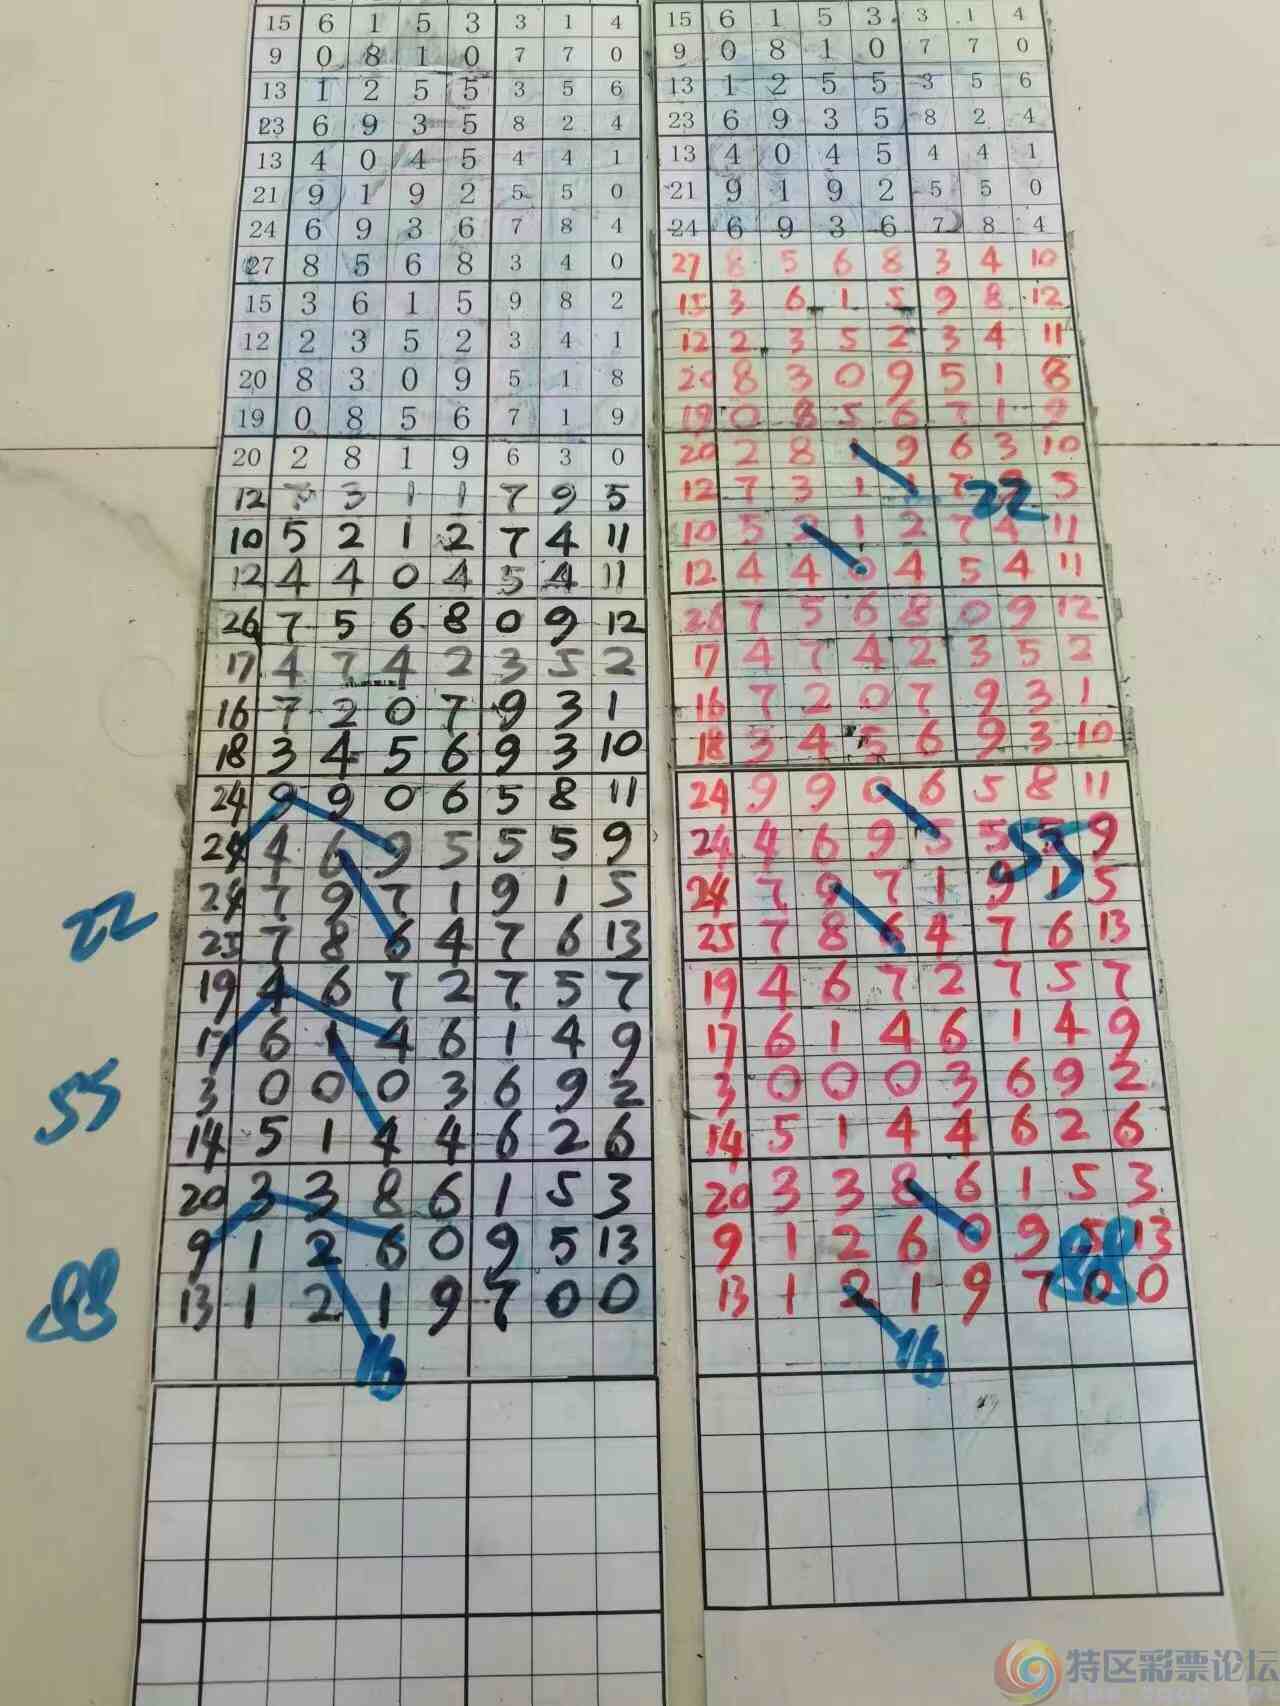 15 6 1 5 3 3 1 4
9 0 8 1 0 7 7 0
13 1 2 5 5 3 5 6
23 6 9 3 5 8 2 4
13 4 0 4 5 4 4 1
21 9 1 9 2 5 5 0
24 6 9 3 6 7 8 4
27 8 5 6 8 3 4 0
15 3 6 1 5 9 8 2
12 2 3 5 2 3 4 1
20 8 3 0 9 5 1 8
19 0 8 5 6 7 1 9
20 2 8 1 9 6 3 0
12 7 3 1 1 7 9 5
10 5 2 1 2 7 4 11
12 4 4 0 4 5 4 11
26 7 5 6 8 0 9 12
17 4 7 4 2 3 5 2
16 7 2 0 7 9 3 1
18 3 4 5 6 9 3 10
24 9 9 0 6 5 8 11
24 4 6 9 5 5 5 9
24 7 9 7 1 9 1 5
25 7 8 6 4 7 6 13
19 4 6 7 2 7 5 7
17 6 1 4 6 1 4 9
3 0 0 0 3 6 9 2
14 5 1 4 4 6 2 6
20 3 3 8 6 1 5 3
9 1 2 6 0 9 5 13
13 1 2 1 9 7 0 0
16
22
55
88
15 6 1 5 3 3 1 4
9 0 8 1 0 7 7 0
13 1 2 5 5 3 5 6
23 6 9 3 5 8 2 4
13 4 0 4 5 4 4 1
21 9 1 9 2 5 5 0
24 6 9 3 6 7 8 4
27 8 5 6 8 3 4 10
15 3 6 1 5 9 8 12
12 2 3 5 2 3 4 11
20 8 3 0 9 5 1 8
19 0 8 5 6 7 1 9
20 2 8 1 9 6 3 10
12 7 3 1 1 7 5
22
10 5 2 1 2 7 4 11
12 4 4 0 4 5 4 11
26 7 5 6 8 0 9 12
17 4 7 4 2 3 5 2
16 7 2 0 7 9 3 1
18 3 4 5 6 9 3 10
24 9 9 0 6 5 8 11
24 4 6 9 5 5 5 9
55
24 7 9 7 1 9 1 5
25 7 8 6 4 7 6 13
19 4 6 7 2 7 5 7
17 6 1 4 6 1 4 9
3 0 0 0 3 6 9 2
14 5 1 4 4 6 2 6
20 3 3 8 6 1 5 3
9 1 2 6 0 9 5 13
88
13 1 2 1 9 7 0 0
16
特区彩票论坛